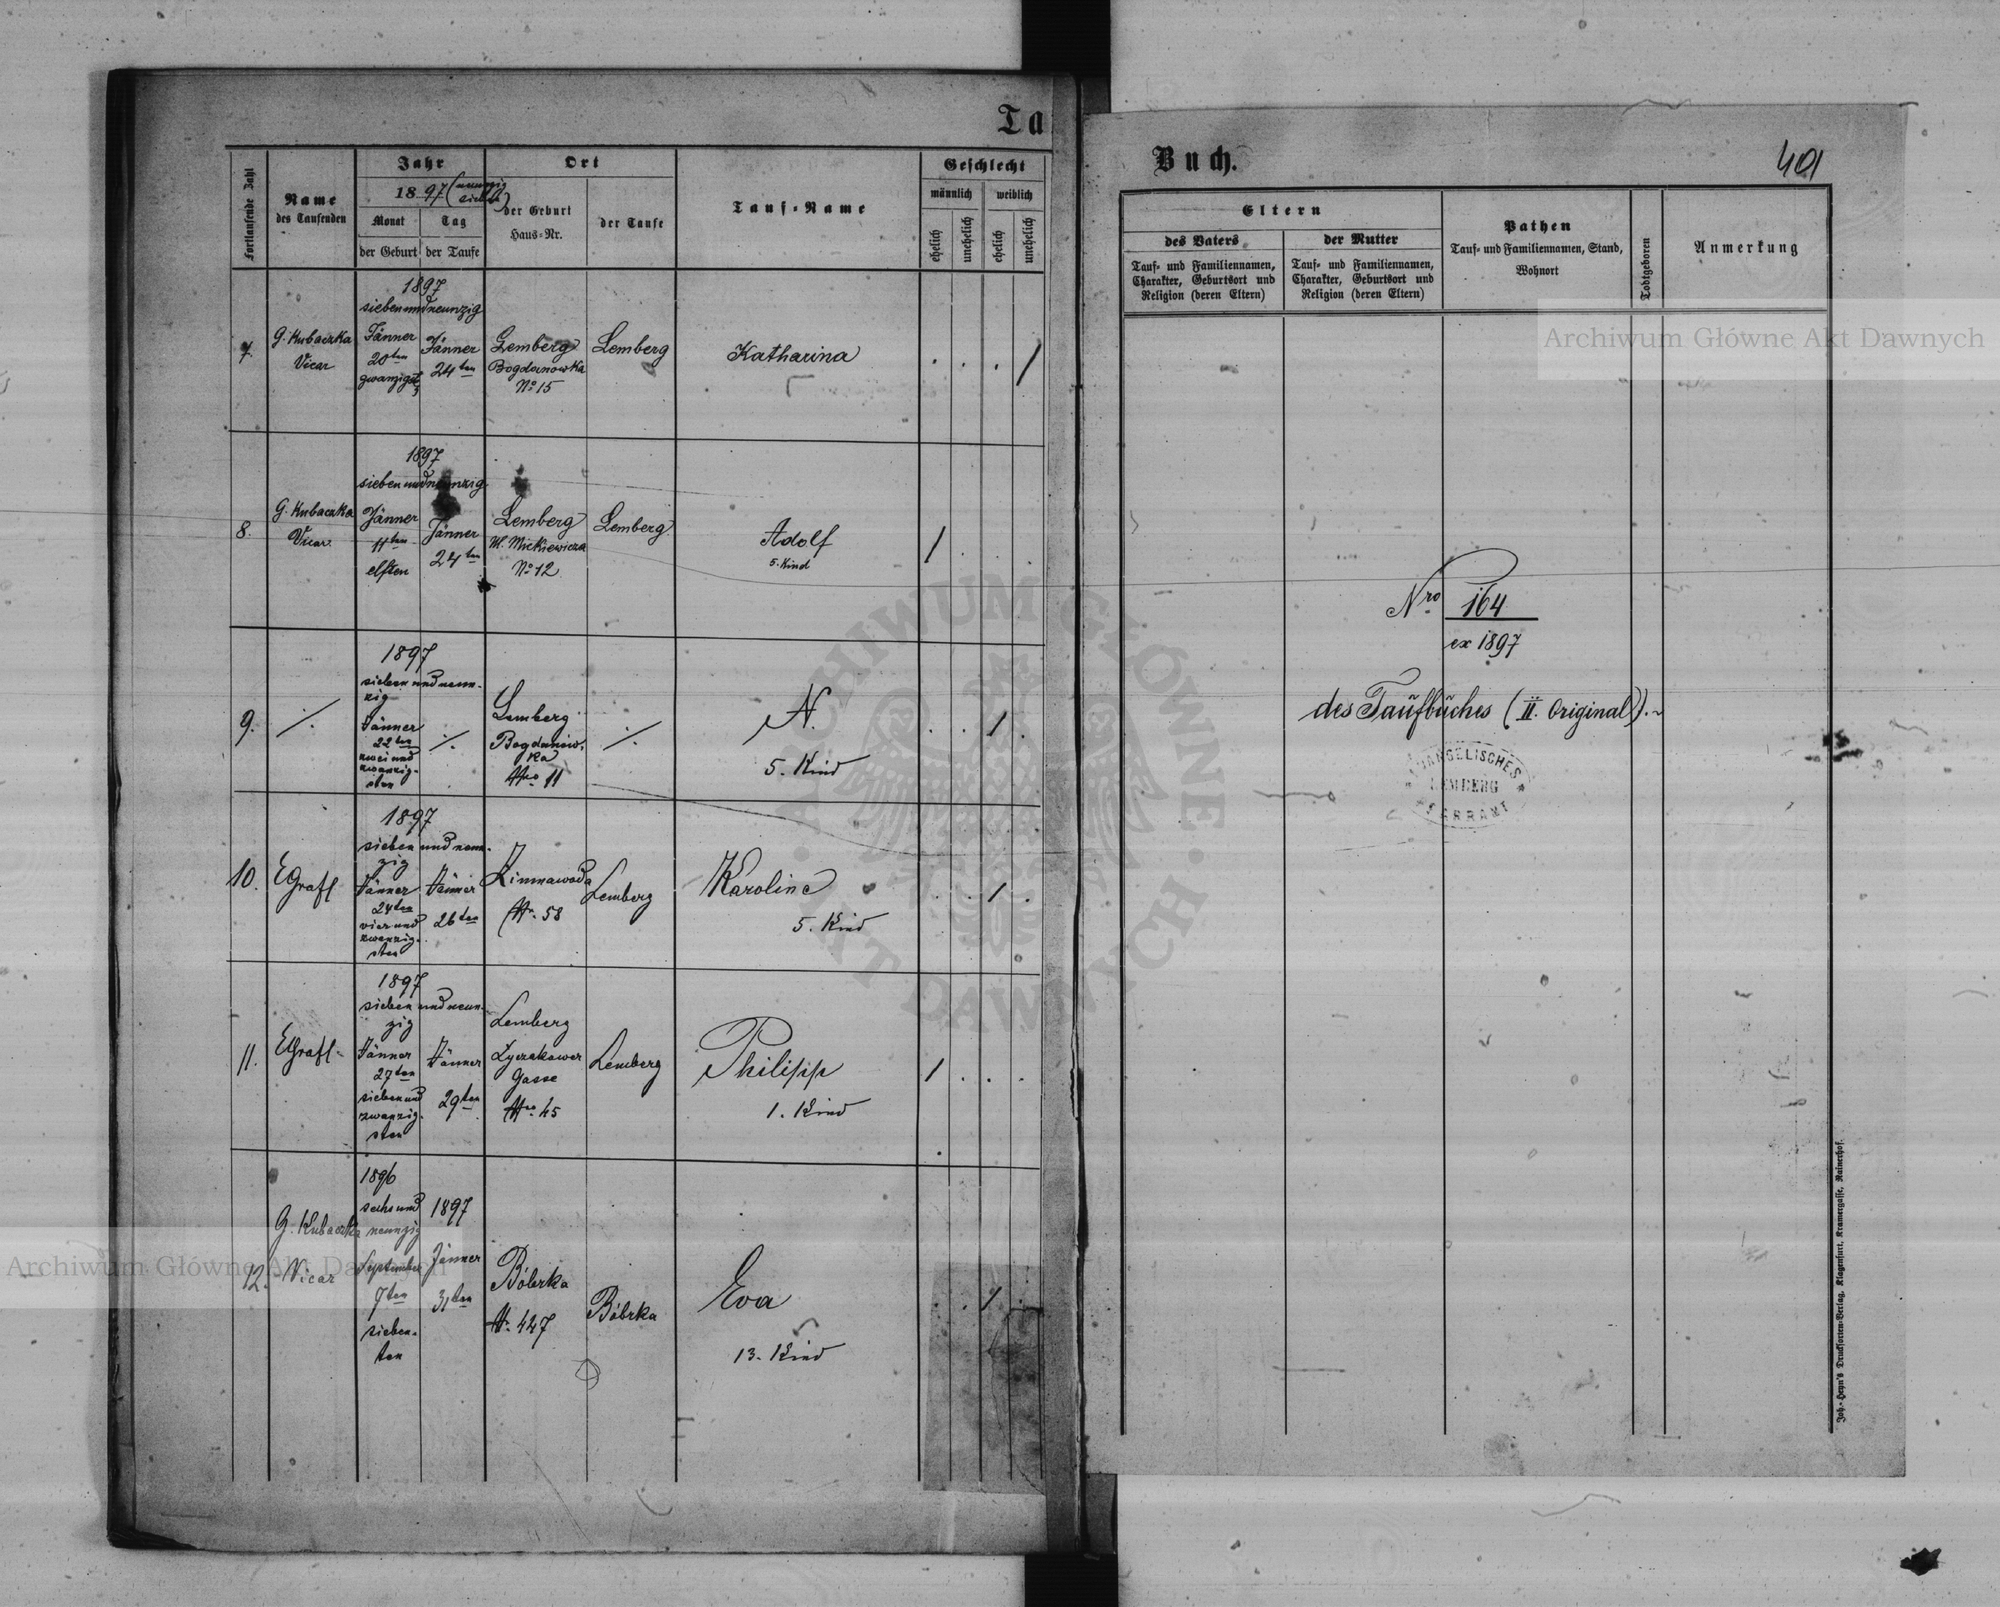 Ta
Buch.
401
Fortlaufende Zahl
Name
des Taufenden
Jahr
1897 (neunzig
sieben)
Monat
der Geburt
Tag
der Taufe
Ort
der Geburt
Haus-Nr.
der Taufe
Tauf-Name
Geschlecht
männlich
weiblich
ehelich
unehelich
ehelich
unehelich
Eltern
des Vaters
Tauf- und Familiennamen,
Charakter, Geburtsort und
Religion (deren Eltern)
der Mutter
Tauf- und Familiennamen,
Charakter, Geburtsort und
Religion (deren Eltern)
Pathen
Tauf- und Familiennamen, Stand,
Wohnort
Todtgeboren
Anmerkung
7.
G. Kubaczka
Vicar
1897
siebenundneunzig
Jänner
20ten
zwanzigst
Jänner
24ten
Lemberg
Bogdanowka
No 15
Lemberg
Katharina
8.
G. Kubaczka
Vicar
1897
siebenundneunzig
Jänner
11ten
elften
Jänner
24ten
Lemberg
Ul. Mickiewicza
No 12
Lemberg
Adolf
5. Kind
9.
1897
siebenundneun-
zig
Jänner
22ten
zweiund
zwanzig-
sten
Lemberg
Bogdanów-
ka
Nro 11
N.
5. Kind
10.
EGrafl
1897
siebenundneun-
zig
Jänner
24ten
vierund
zwanzig-
sten
Jänner
26ten
Zimnawoda
Nr. 58
Lemberg
Karoline
5. Kind
11.
EGrafl
1897
siebenundneun-
zig
Jänner
27ten
siebenund
zwanzig-
sten
Jänner
29ten
Lemberg
Lyczakower
Gasse
Nro 45
Lemberg
Philipp
1. Kind
12.
G. Kubaczka
Vicar
1896
sechsund
neunzig
September
7ten
sieben-
ten
1897
Jänner
31ten
Bóbrka
Nr. 447
Bóbrka
Eva
13. Kind
Nro 164
ex 1897
des Taufbuches (II. Original).
EVANGELISCHES
LEMBERG
PFARRAMT
Joh. Heyn's Drucksorten-Verlag, Klagenfurt, Kramergasse, Rainerhof.
Archiwum Główne Akt Dawnych
Archiwum Główne Akt Dawnych
ARCHIWUM GŁÓWNE
AKT DAWNYCH